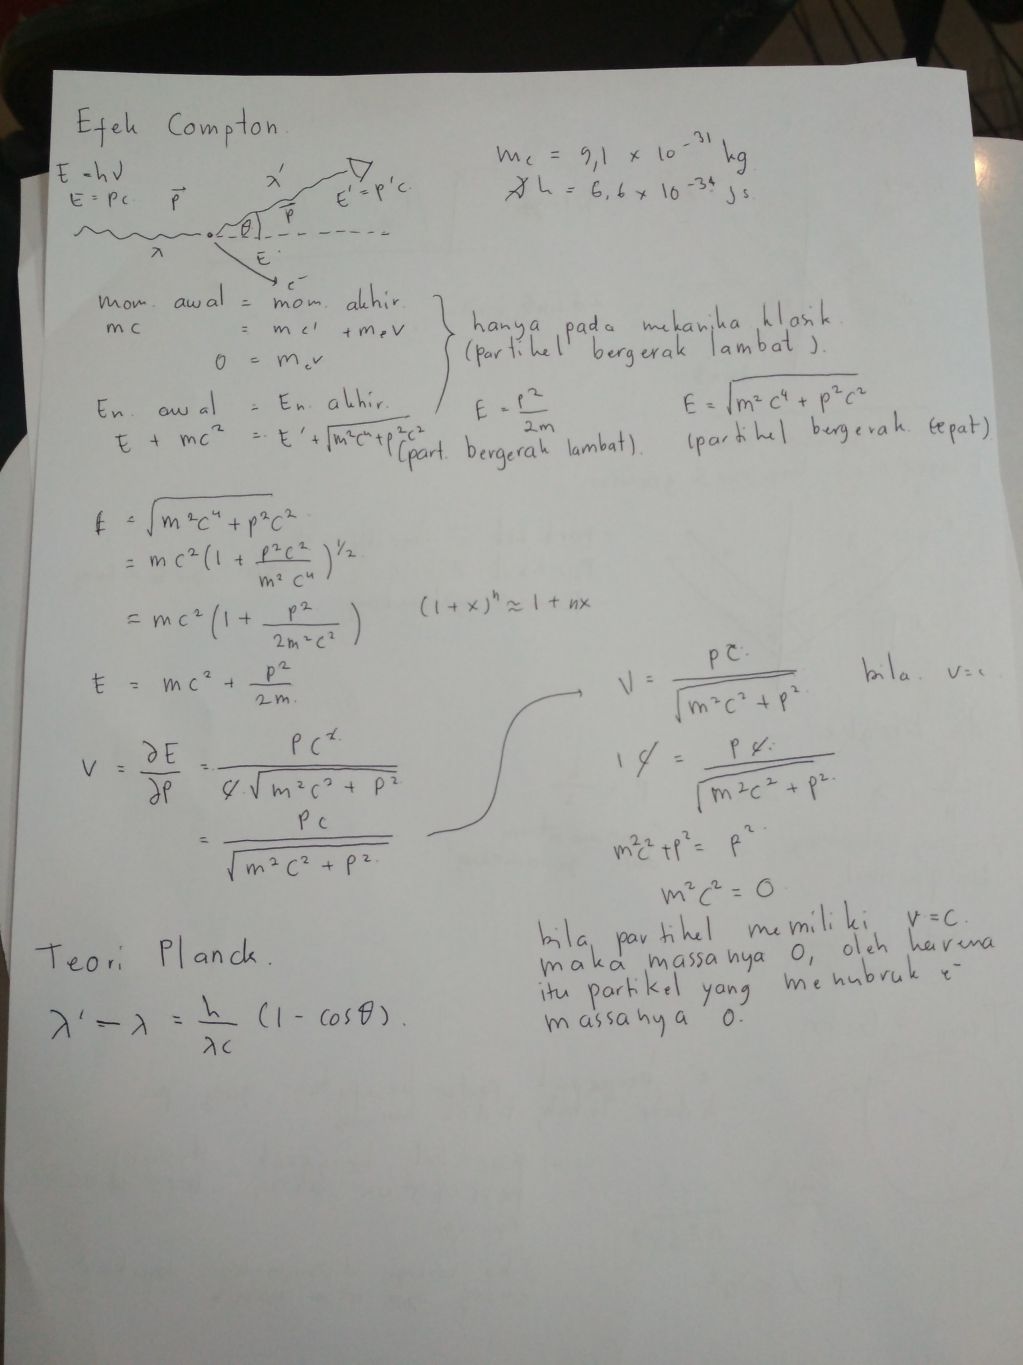 Efek Compton.
E = hν
E = pc.
p⃗
λ'
E' = p'c.
p⃗
θ
λ
E
e⁻
mₑ = 9,1 × 10⁻³¹ kg
h = 6,6 × 10⁻³⁴ Js.
mom. awal = mom. akhir.
mc = mc' + mₑv
0 = mₑv
hanya pada mekanika klasik.
(partikel bergerak lambat).
En. awal = En. akhir.
E + mc² = E' + √(m²c⁴ + p²c²)
E = p²/2m
(part. bergerak lambat).
E = √(m²c⁴ + p²c²)
(partikel bergerak cepat)
E = √(m²c⁴ + p²c²)
= mc² (1 + p²c²/m²c⁴)^1/2
= mc² (1 + p²/2m²c²)
(1+x)ⁿ ≈ 1 + nx
E = mc² + p²/2m.
V = ∂E/∂p = pc²/c.√(m²c² + p²)
= pc/√(m²c² + p²)
V = pc/√(m²c² + p²)
bila. v=c
1 c = pc/√(m²c² + p²)
m²c² + p² = p²
m²c² = 0
bila partikel memiliki v=c.
maka massanya 0, oleh karena
itu partikel yang menubruk e⁻
massanya 0.
Teori Planck.
λ' - λ = h/λc (1 - cosθ).